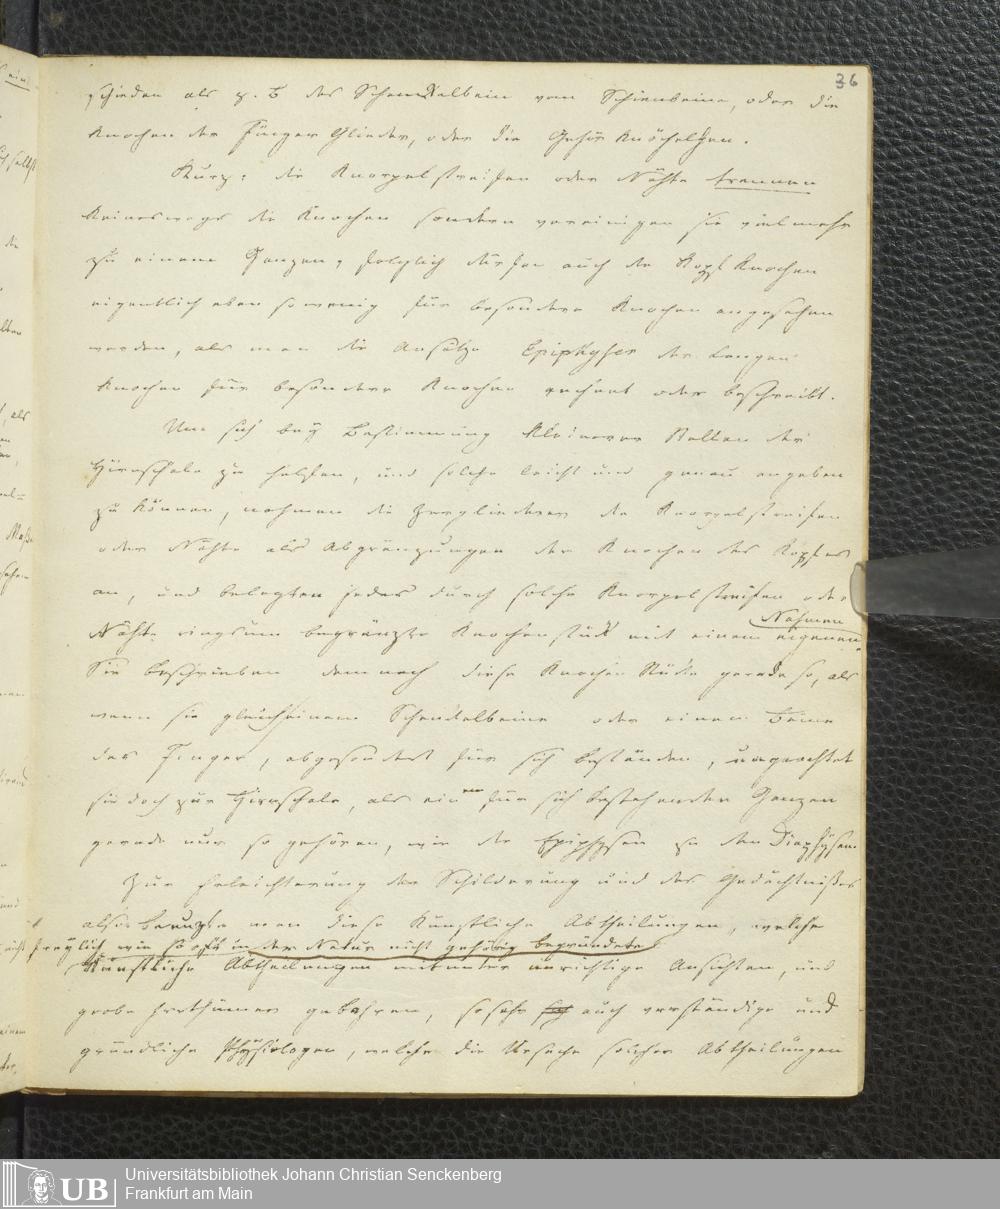 36
schieden als z. B das Schenkelbein vom Schienbeine, oder die
Knochen der Finger Glieder, oder die Gehör Knöchelchen.
Kurz: die Knorpelstreifen oder Nähte trennen
keineswegs die Knochen sondern vereinigen sie vielmehr
zu einem Ganzen, folglich dürfen auch die Kopf Knochen
eigentlich eben so wenig für besondere Knochen angesehen
werden, als man die Ansätze Epiphyses der langen
Knochen für besondere Knochen rechnet oder beschreibt.
Um sich bey Bestimmung kleinerer Stellen der
Hirnschale zu helfen, und solche leicht und genau angeben
zu können, nahmen die Zergliederer die Knorpelstreifen
oder Nähte als Abgränzungen der Knochen des Kopfes
an, und belegten jedes durch solche Knorpelstreifen oder
Nähte ringsum begränzte Knochenstück mit einem eigenen
Nahmen
Sie beschrieben demnach diese Knochen Stücke gerade so, als
wenn sie gleich einem Schenkelbeine oder einem Beine
der Finger, abgesondert für sich beständen, ungeachtet
sie doch zur Hirnschale, als einem für sich bestehenden Ganzen
gerade nur so gehören, wie die Epiphysen zu den Diaphysen.
Zur Erleichterung der Schilderung und des Gedächtnißes
also benuzte man diese Künstliche Abtheilungen, welche
freylich wie so oft in der Natur nicht gehörig begründete
Künstliche Abtheilungen mitunter unrichtige Ansichten, und
grobe Irrthümer gebahren, so sehr auch verständige und
gründliche Physiologen, welche die Ursache solcher Abtheilungen
UB
Universitätsbibliothek Johann Christian Senckenberg
Frankfurt am Main